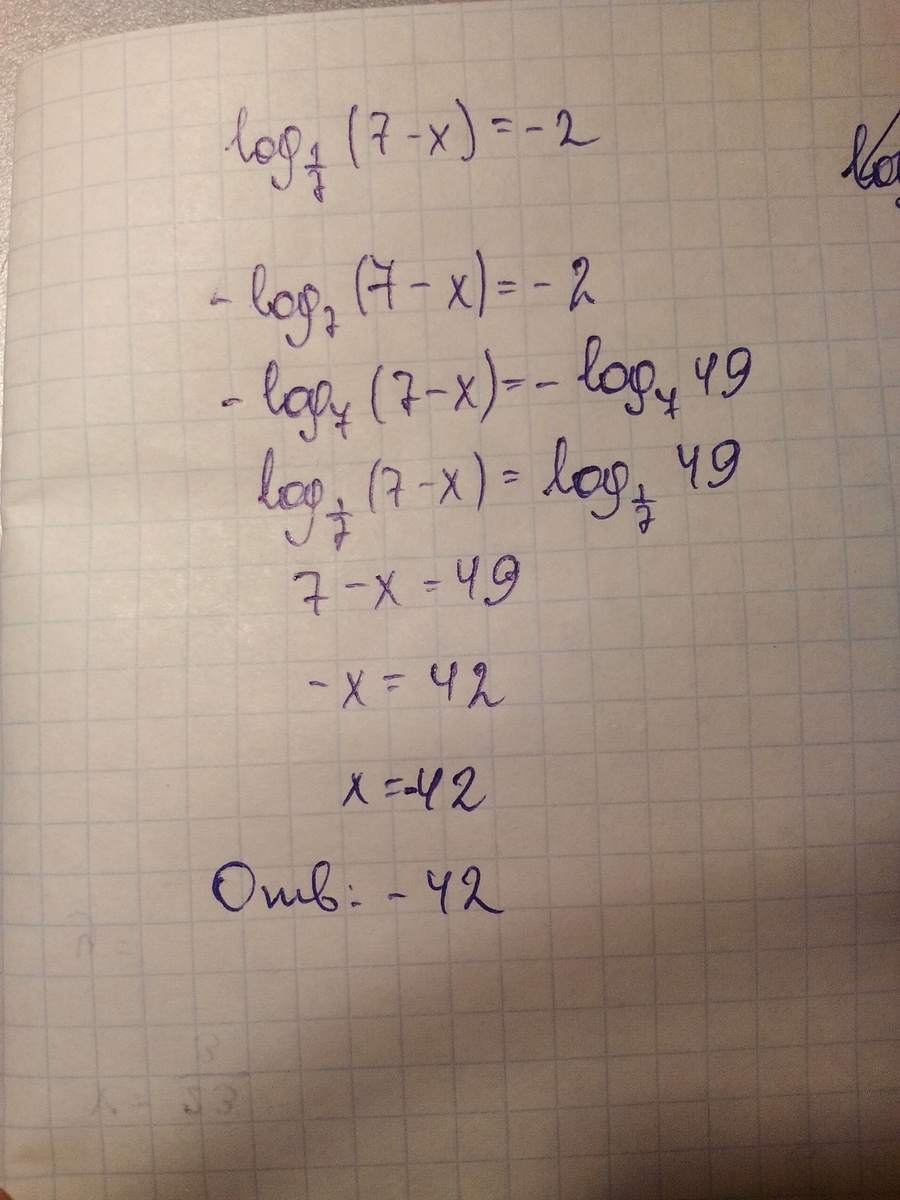 log_{1/7} (7-x) = -2
lo
- log_7 (7-x) = -2
- log_7 (7-x) = - log_7 49
log_{1/7} (7-x) = log_{1/7} 49
7-x = 49
-x = 42
x = -42
Отв: -42